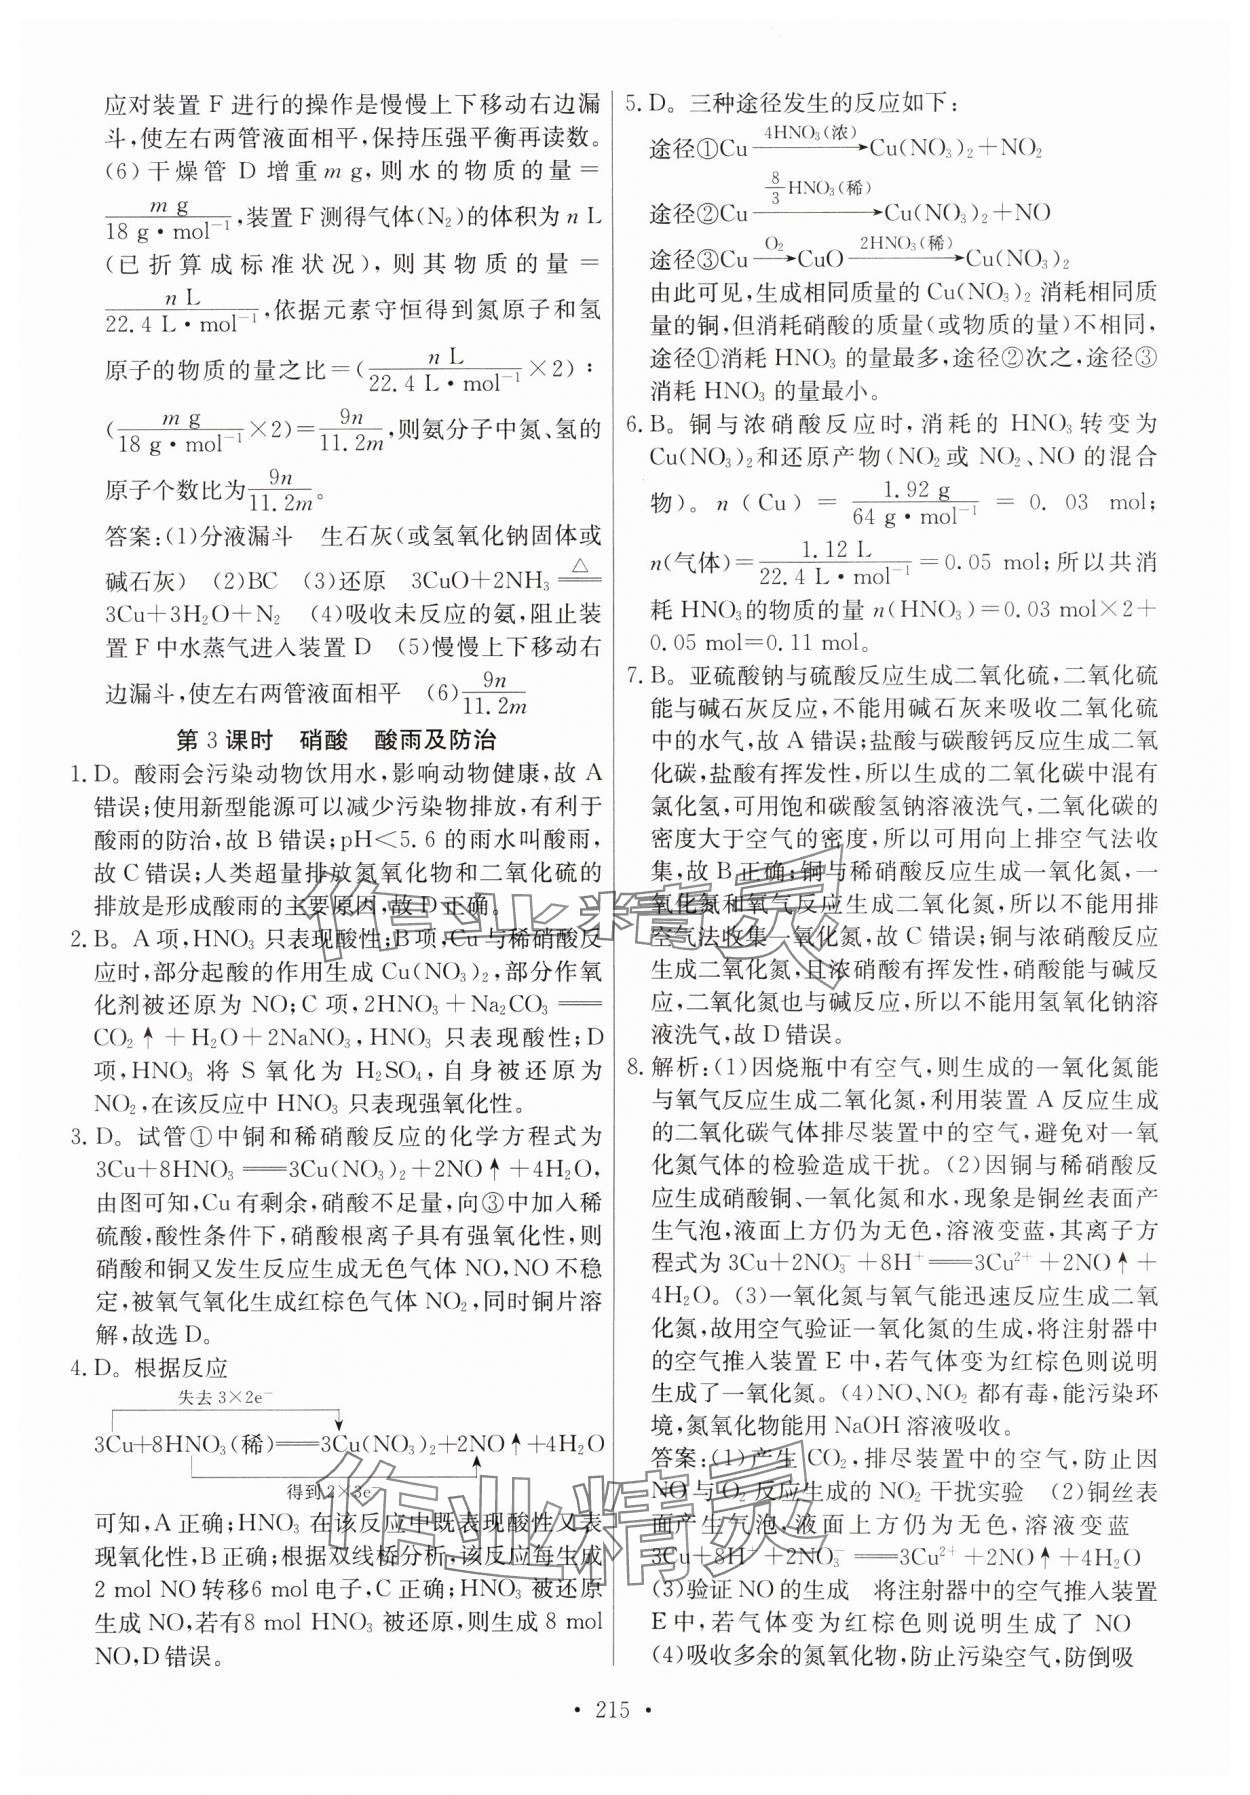 应对装置 F 进行的操作是慢慢上下移动右边漏
斗,使左右两管液面相平,保持压强平衡再读数。
(6)干燥管 D 增重 m g,则水的物质的量=
m g/18 g·mol⁻¹,装置 F 测得气体(N₂)的体积为 n L
(已折算成标准状况),则其物质的量=
n L/22.4 L·mol⁻¹,依据元素守恒得到氮原子和氢
原子的物质的量之比=(n L/22.4 L·mol⁻¹×2):
(m g/18 g·mol⁻¹×2)=9n/11.2m,则氨分子中氮、氢的
原子个数比为9n/11.2m。
答案:(1)分液漏斗 生石灰(或氢氧化钠固体或
碱石灰) (2)BC (3)还原 3CuO+2NH₃ △══
3Cu+3H₂O+N₂ (4)吸收未反应的氨,阻止装
置 F 中水蒸气进入装置 D (5)慢慢上下移动右
边漏斗,使左右两管液面相平 (6)9n/11.2m
第 3 课时 硝酸 酸雨及防治
1. D。酸雨会污染动物饮用水,影响动物健康,故 A
错误;使用新型能源可以减少污染物排放,有利于
酸雨的防治,故 B 错误;pH<5.6 的雨水叫酸雨,
故 C 错误;人类超量排放氮氧化物和二氧化硫的
排放是形成酸雨的主要原因,故 D 正确。
2. B。A 项,HNO₃ 只表现酸性;B 项,Cu 与稀硝酸反
应时,部分起酸的作用生成 Cu(NO₃)₂,部分作氧
化剂被还原为 NO;C 项,2HNO₃+Na₂CO₃══
CO₂↑+H₂O+2NaNO₃,HNO₃ 只表现酸性;D
项,HNO₃ 将 S 氧化为 H₂SO₄,自身被还原为
NO₂,在该反应中 HNO₃ 只表现强氧化性。
3. D。试管①中铜和稀硝酸反应的化学方程式为
3Cu+8HNO₃══3Cu(NO₃)₂+2NO↑+4H₂O,
由图可知,Cu 有剩余,硝酸不足量,向③中加入稀
硫酸,酸性条件下,硝酸根离子具有强氧化性,则
硝酸和铜又发生反应生成无色气体 NO,NO 不稳
定,被氧气氧化生成红棕色气体 NO₂,同时铜片溶
解,故选 D。
4. D。根据反应
失去 3×2e⁻
3Cu+8HNO₃(稀)══3Cu(NO₃)₂+2NO↑+4H₂O
得到 2×3e⁻
可知,A 正确;HNO₃ 在该反应中既表现酸性又表
现氧化性,B 正确;根据双线桥分析,该反应每生成
2 mol NO 转移6 mol 电子,C 正确;HNO₃ 被还原
生成 NO,若有8 mol HNO₃ 被还原,则生成 8 mol
NO,D 错误。
5. D。三种途径发生的反应如下:
途径①Cu —4HNO₃(浓)→Cu(NO₃)₂+NO₂
途径②Cu —8/3HNO₃(稀)→Cu(NO₃)₂+NO
途径③Cu —O₂→CuO —2HNO₃(稀)→Cu(NO₃)₂
由此可见,生成相同质量的 Cu(NO₃)₂ 消耗相同质
量的铜,但消耗硝酸的质量(或物质的量)不相同,
途径①消耗 HNO₃ 的量最多,途径②次之,途径③
消耗 HNO₃ 的量最小。
6. B。铜与浓硝酸反应时,消耗的 HNO₃ 转变为
Cu(NO₃)₂和还原产物(NO₂或 NO₂、NO 的混合
物)。n(Cu)=1.92 g/64 g·mol⁻¹=0.03 mol;
n(气体)=1.12 L/22.4 L·mol⁻¹=0.05 mol;所以共消
耗 HNO₃的物质的量 n(HNO₃)=0.03 mol×2+
0.05 mol=0.11 mol。
7. B。亚硫酸钠与硫酸反应生成二氧化硫,二氧化硫
能与碱石灰反应,不能用碱石灰来吸收二氧化硫
中的水气,故 A 错误;盐酸与碳酸钙反应生成二氧
化碳,盐酸有挥发性,所以生成的二氧化碳中混有
氯化氢,可用饱和碳酸氢钠溶液洗气,二氧化碳的
密度大于空气的密度,所以可用向上排空气法收
集,故 B 正确;铜与稀硝酸反应生成一氧化氮,一
氧化氮和氧气反应生成二氧化氮,所以不能用排
空气法收集一氧化氮,故 C 错误;铜与浓硝酸反应
生成二氧化氮,且浓硝酸有挥发性,硝酸能与碱反
应,二氧化氮也与碱反应,所以不能用氢氧化钠溶
液洗气,故 D 错误。
8. 解析:(1)因烧瓶中有空气,则生成的一氧化氮能
与氧气反应生成二氧化氮,利用装置 A 反应生成
的二氧化碳气体排尽装置中的空气,避免对一氧
化氮气体的检验造成干扰。(2)因铜与稀硝酸反
应生成硝酸铜、一氧化氮和水,现象是铜丝表面产
生气泡,液面上方仍为无色,溶液变蓝,其离子方
程式为 3Cu+2NO₃⁻+8H⁺══3Cu²⁺+2NO↑+
4H₂O。(3)一氧化氮与氧气能迅速反应生成二氧
化氮,故用空气验证一氧化氮的生成,将注射器中
的空气推入装置 E 中,若气体变为红棕色则说明
生成了一氧化氮。(4)NO、NO₂ 都有毒,能污染环
境,氮氧化物能用 NaOH 溶液吸收。
答案:(1)产生 CO₂,排尽装置中的空气,防止因
NO 与 O₂ 反应生成的 NO₂ 干扰实验 (2)铜丝表
面产生气泡,液面上方仍为无色,溶液变蓝
3Cu+8H⁺+2NO₃⁻══3Cu²⁺+2NO↑+4H₂O
(3)验证 NO 的生成 将注射器中的空气推入装置
E 中,若气体变为红棕色则说明生成了 NO
(4)吸收多余的氮氧化物,防止污染空气,防倒吸
· 215 ·
作业精灵
作业精灵